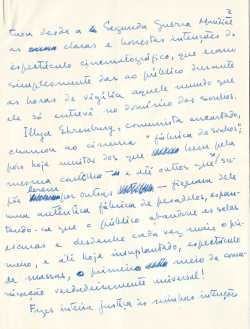 2
desde a Segunda Guerra Mundial
as claras e honestas intenções do
espetáculo cinematográfico, que eram
simplesmente dar ao público durante
as horas de vigília aquele mundo que
ele só entrevê no domínio dos sonhos.
Illya Ehrenburg, comunista encantado,
chamou ao cinema "fábrica de sonhos;
pois hoje muitos dos que bem pela
mesma cartilha e até outros que
por outras fizeram dele
uma autêntica fábrica de pesadelos, espan-
tando-se que o público abandone as salas
escuras e desdenhe cada vez mais o pri-
meiro, e até hoje insuplantado, espetáculo
de massas, o primeiro meio de comu-
nicação verdadeiramente universal!
Fazes inteira justiça às minhas intenções